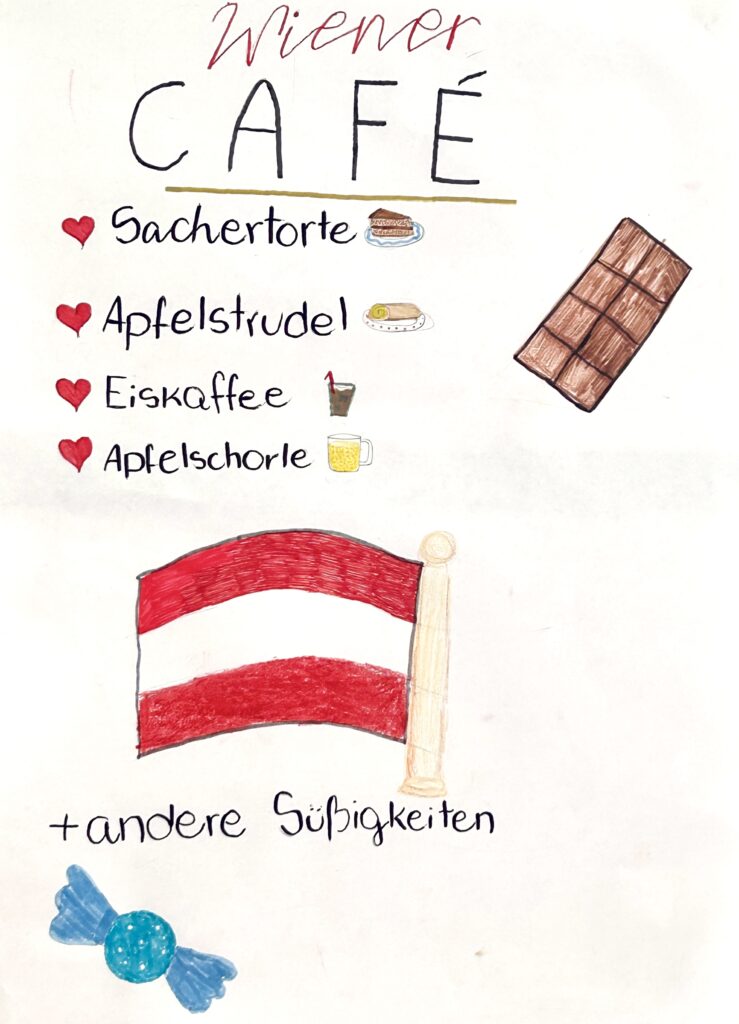 Wiener
CAFÉ
Sachertorte
Apfelstrudel
Eiskaffee
Apfelschorle
+ andere Süßigkeiten